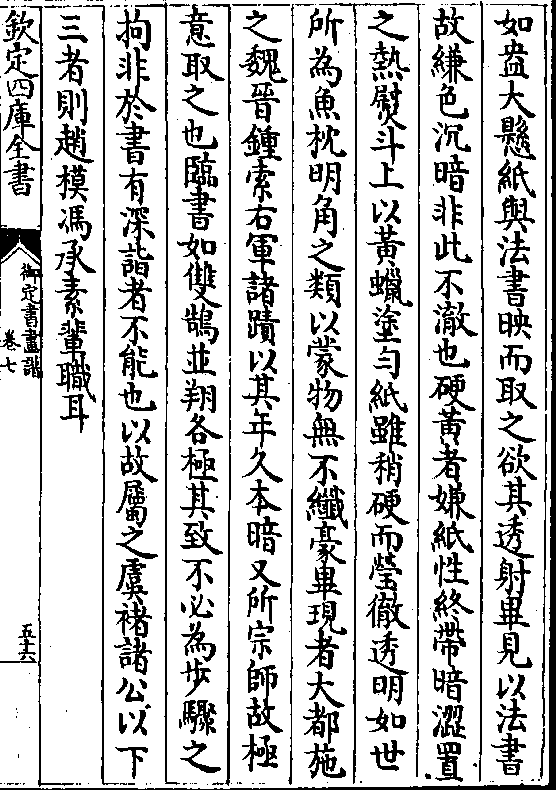 如盎大懸紙與法書映而取之欲其透射畢見以法書
故縑色沉暗非此不澈也硬黃者嫌紙性終帶暗澀置
之熱熨斗上以黃蠟塗勻紙雖稍硬而瑩徹透明如世
所為魚枕明角之類以蒙物無不纖豪畢現者大都施
之魏晉鍾索右軍諸蹟以其年久本暗又所宗師故極
意取之也臨書如雙鵠並翔各極其致不必為步驟之
拘非於書有深詣者不能也以故屬之虞褚諸公以下
三者則趙模馮承素輩職耳
欽定四庫全書
御定書畫譜
卷七
五六